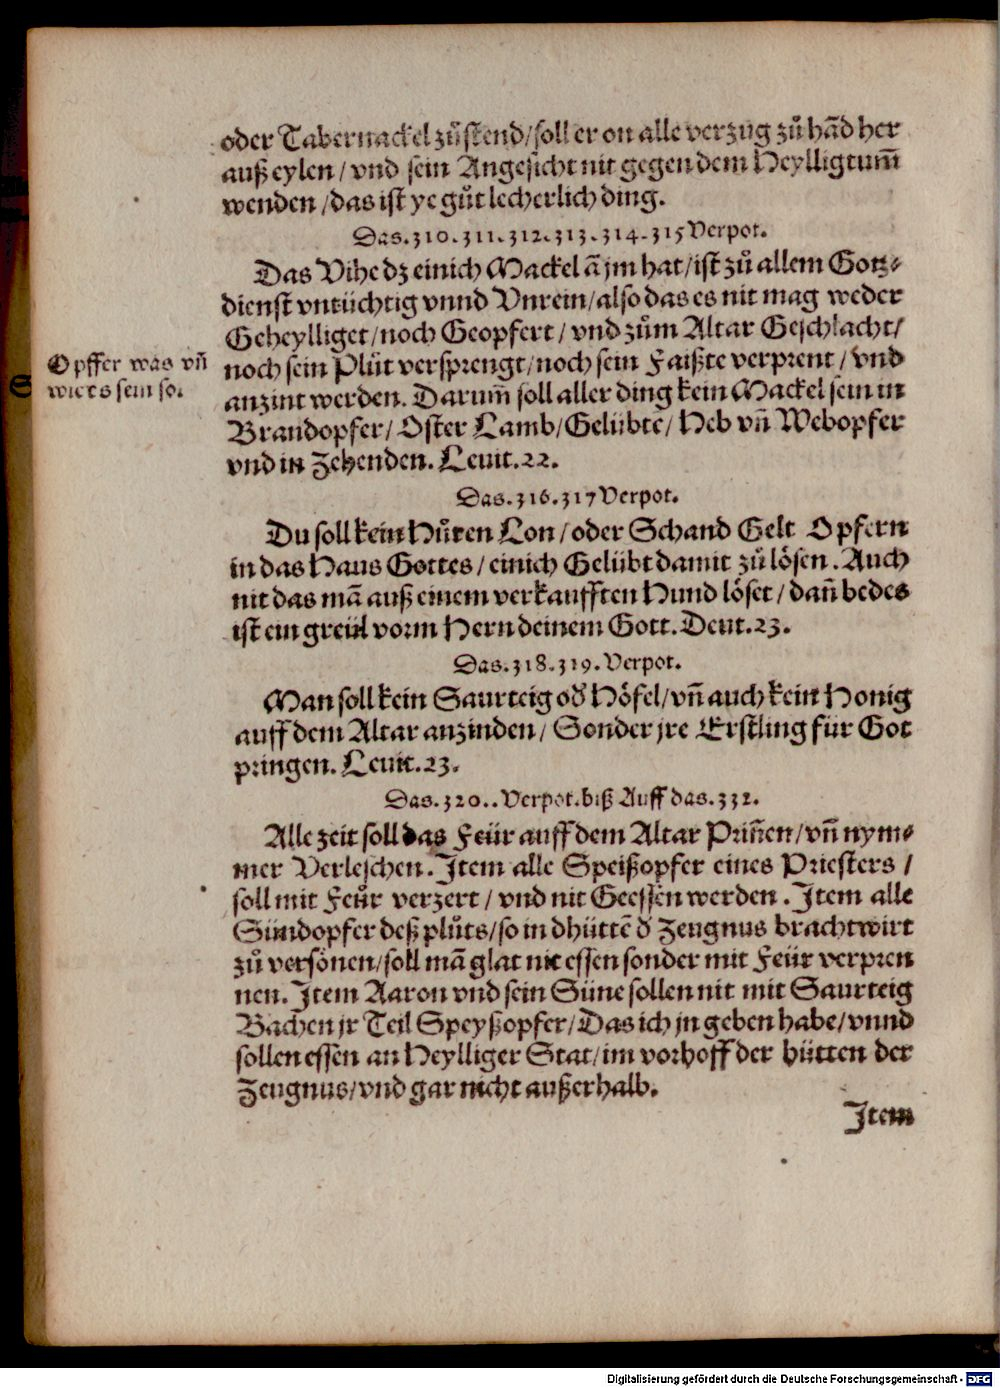 oder Tabernackel zůstend/soll er on alle verzug zů hãd her
auß eylen/ vnd sein Angesicht nit gegen dem Heylligtum̃
wenden/das ist ye gůt lecherlich ding.
Das.310.311.312.313.314.315 Verpot.
Das Vihe dz einich Mackel ã jm hat/ist zů allem Gotz⸗
dienst vntüchtig vnnd Vnrein/also das es nit mag weder
Geheylliget/noch Geopfert/ vnd zům Altar Geschlacht/
Opffer was vñ
wiets sein so.
noch sein Plůt versprengt/noch sein Faißte verprent/ vnd
anzint werden. Darum̃ soll aller ding kein Mackel sein in
Brandopfer/ Oster Lamb/Gelübtẽ/ Heb vñ Webopfer
vnd in Zehenden. Levit.22.
Das.316.317 Verpot.
Du soll kein Hůren Lon/oder Schand Gelt Opfern
in das Haus Gottes/einich Gelübt damit zů lösen. Auch
nit das mã auß einem verkaufften Hund löset/ dañ bedes
ist ein greül vorm Hern deinem Gott. Deut.23.
Das.318.319.Verpot.
Man soll kein Saurteig od̾ Höfel/vñ auch kein Honig
auff dem Altar anzinden/ Sonder jre Erstling für Got
pringen. Levit.23.
Das.320..Verpot.biß Auff das.332.
Alle zeit soll das Feür auff dem Altar Priñen/vñ nym⸗
mer Verleschen. Item alle Speißopfer eines Priesters/
soll mit Feůr verzert/ vnd nit Geessen werden. Item alle
Sündopfer deß plůts/so in dhüttẽ d̾ Zeugnus bracht wirt
zů versönen/soll mã glat nit essen sonder mit Feür verpren
nen. Item Aaron vnd sein Süne sollen nit mit Saurteig
Bachen jr Teil Speyßopfer/Das ich jn geben habe/vnnd
sollen essen an Heylliger Stat/im vorhoff der hütten der
Zeugnus/vnd gar nicht außerhalb.
Item
Digitalisierung gefördert durch die Deutsche Forschungsgemeinschaft - DFG